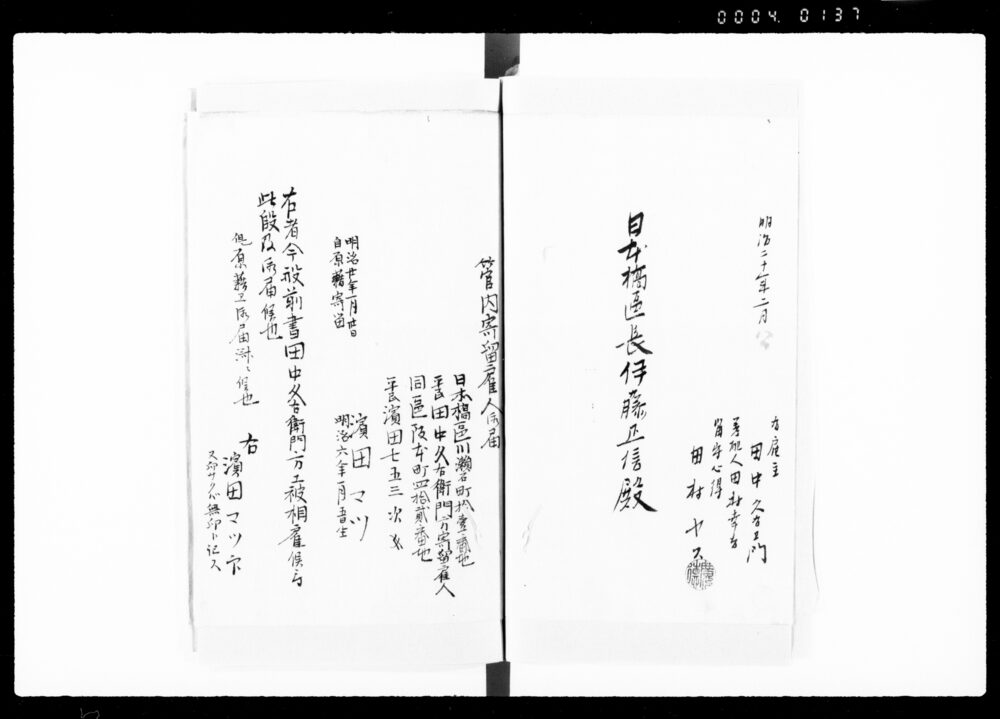 0004 0137
明治二十年二月
右雇主
田中久右エ門
差配人田村幸吉
留守心得
田村ヤス
日本橋區長伊藤正信殿
管内寄留雇人御届
日本橋區川瀬石町拾壹番地
平民田中久右衛門方寄留雇人
同區阪本町四拾貳番地
平民濱田七五三次
濱田マツ
明治六年一月吉日生
明治廿年一月廿日
自原籍寄留
右者今般前書田中久右衛門方エ被相雇候ニ
此段及御届候也
但原籍エ御届済ニ候也
右
濱田マツ
無印ト記ス